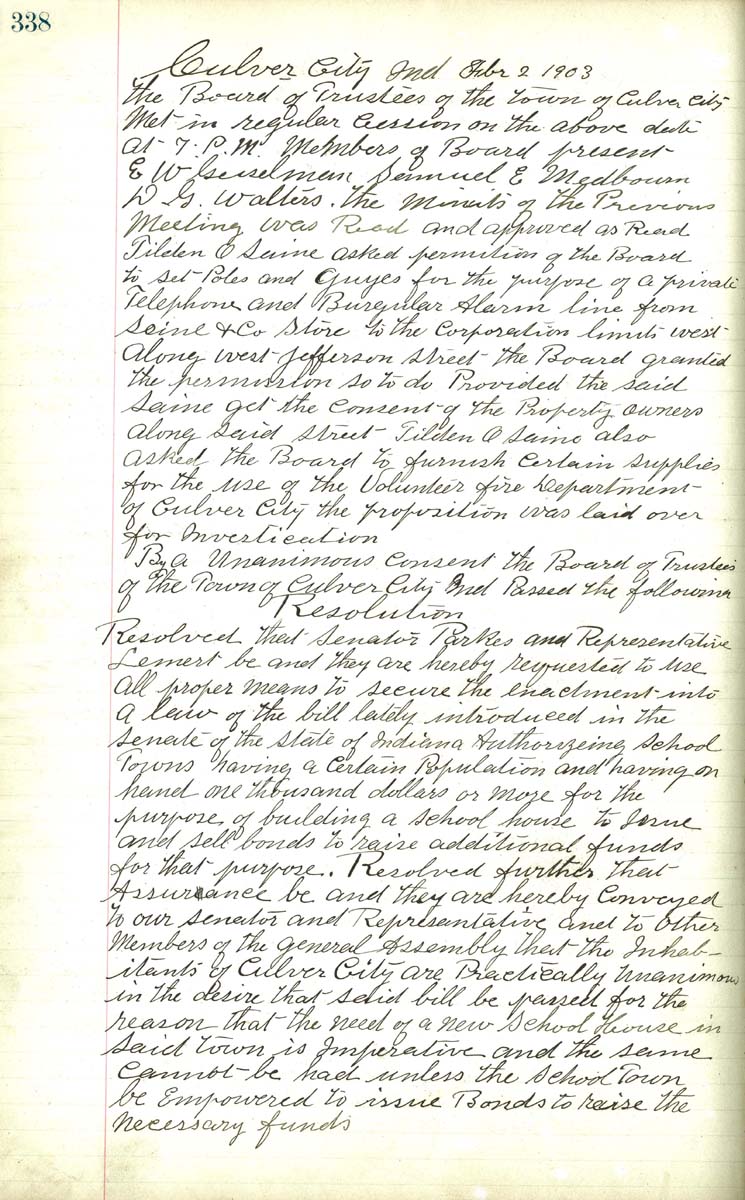 338
Culver City Ind Febr 2 1903
the Board of Trustees of the town of Culver City
Met in regular Cession on the above date
at 7. P.M. Members of Board present
E W Geiselman Samuel E Medbourn
D G. Walters. the Minuits of the Previous
Meeting was Read and approved as Read
Tilden O Saine asked permition of the Board
to set Poles and Guyes for the purpose of a private
Telephone and Burgular Alarm line from
Seine & Co Store to the Corporation limits west
along west Jefferson street the Board granted
the permission so to do Provided the said
Saine get the Consent of the Property owners
along said street Tilden O Saine also
asked the Board to furnish Certain supplies
for the use of the Volunteer fire Department
of Culver City the proposition was laid over
for Investication
By a Unanimous Consent the Board of Trustees
of the Town of Culver City Ind Passed the following
Resolution
Resolved that Senator Parkes and Representative
Lemert be and they are hereby requested to use
all proper means to secure the enactment into
a law of the bill lately introduced in the
Senate of the State of Indiana Authorizeing School
Towns having a Certain Population and having on
hand one thousand dollars or more for the
purpose of building a school house to Issue
and sell bonds to raise additional funds
for that purpose. Resolved further that
Assurance be and they are hereby Conveyed
to our Senator and Representative and to other
Members of the general Assembly that the Inhab-
itants of Culver City are Practically Unanimous
in the desire that said bill be passed for the
reason that the need of a new School House in
said town is Imperative and the same
Cannot be had unless the School Town
be Empowered to issue Bonds to raise the
necessary funds